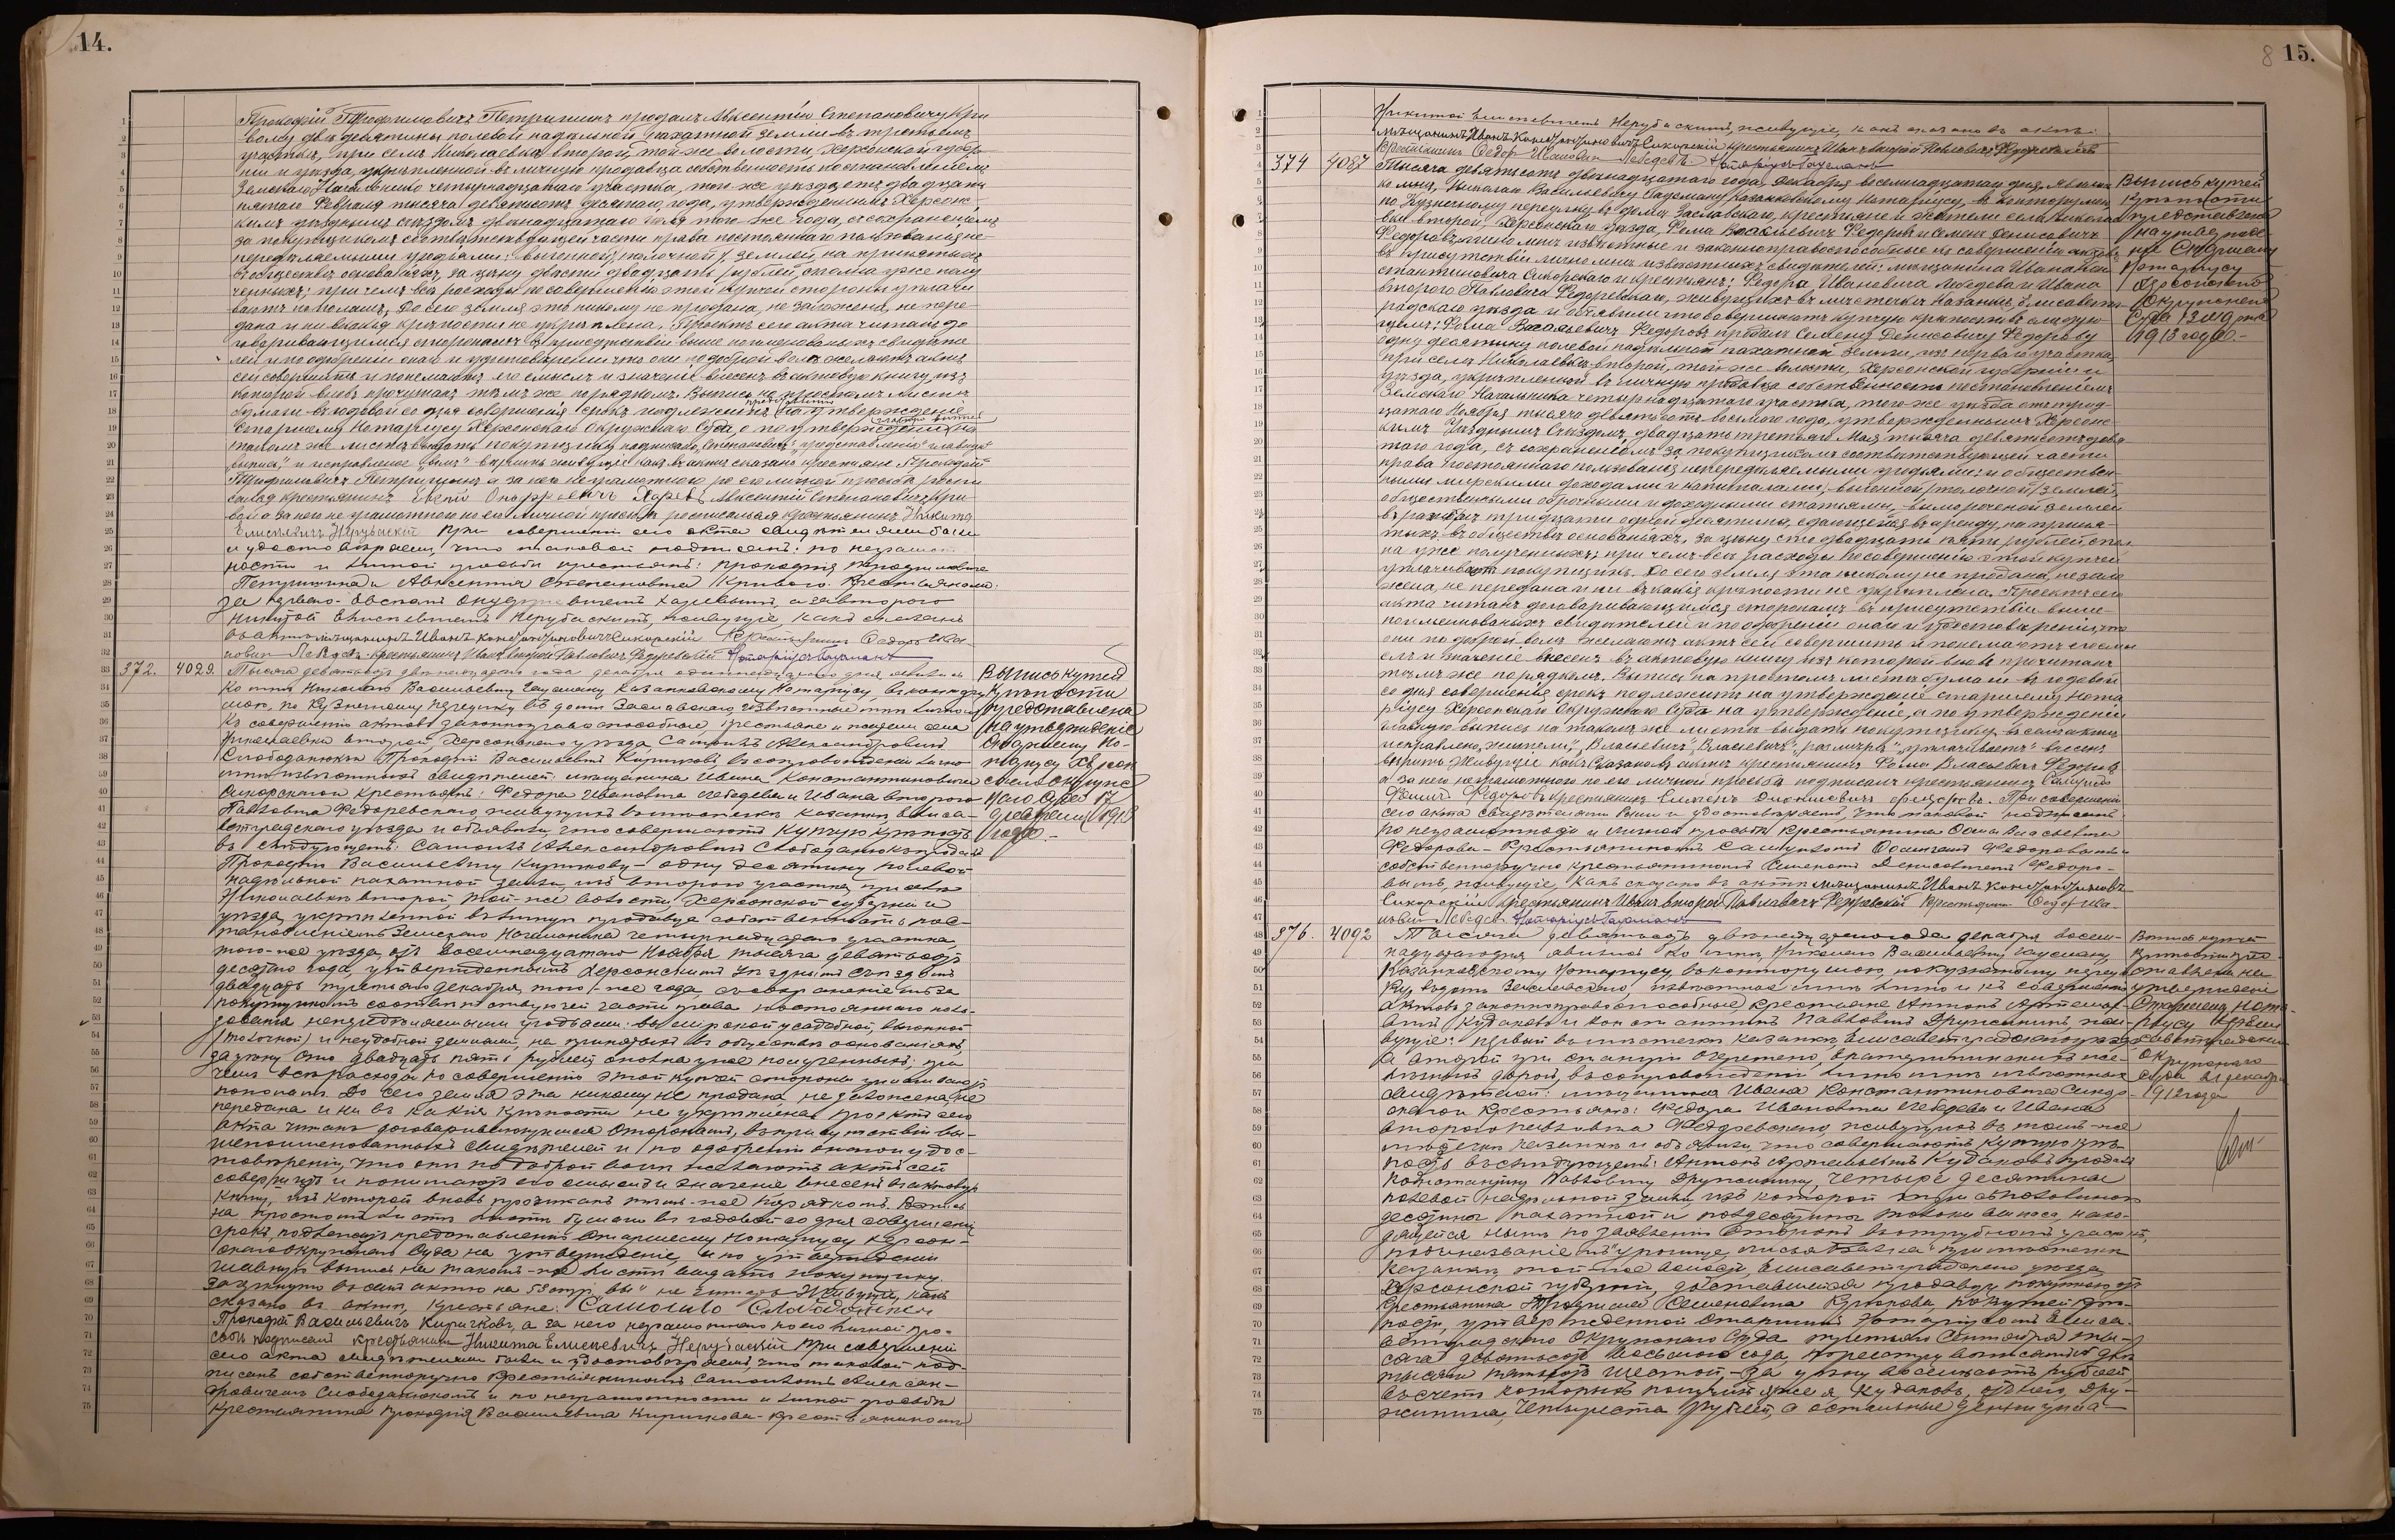 14.
Прокофій Трофимовичъ Петришинъ продалъ Авксентію Степановичу Кри
вому двѣ десятины полевой надѣльной пахатной земли въ третьемъ
участкѣ, при селѣ Николаевкѣ второй, той же волости, Херсонской губер
ніи и уѣзда, укрѣпленной въ личную продавца собственность постановленіемъ
Земскаго Начальника четырнадцатаго участка, того же уѣзда отъ двадцать
пятаго Февраля тысяча девятьсотъ десятаго года, утвержденнымъ Херсонс-
кимъ уѣзднымъ съѣздомъ двѣнадцатаго того же года, съ сохраненіемъ
за покупщикомъ соотвѣтствующей части права постояннаго пользованія не-
передѣляемыми угодьями: выгонной /толочной/ землей, на принятыхъ
въ обществѣ основаніяхъ, за цѣну двѣсти двадцать рублей, сполна уже полу
ченныхъ; при чемъ всѣ расходы по совершенію этой купчей стороны уплачи
ваютъ пополамъ. До сего земля эта никому не продана, не заложена, не пере-
дана и ни въ какія крѣпости не укрѣплена. Проектъ сего акта читанъ до
говаривающимся сторонамъ въ присутствіи выше поименованныхъ свидѣте
лей и по одобреніи онаго и удостовѣреніи что они по доброй волѣ желаютъ актъ
сей совершить и понемаютъ его смыслъ и значеніе внесенъ въ актовую книгу, изъ
которой вновь прочитанъ тѣмъ же порядкомъ. Выпись на простомъ листѣ
бумаги въ годовой со дня совершенія срокъ подлежитъ на утвержденіе
Старшему Нотаріусу Херсонскаго Окружнаго Суда, а по утвержденіи на
такомъ же листѣ выдать покупщику. надписано, Степановичъ", "представленію" "главную
выпись," и исправленное вѣрить. живущіе какъ въ актѣ сказано крестьяне Прокофій
Трофимовичъ Петришинъ а за него неграмотнаго по его личной просьбѣ роспи
сался крестьянинъ Авксентій Степановичъ Кри-
вой а за него не грамотнаго по его личной просьбѣ росписался крестьянинъ Никита
Елисѣевичъ Нерубаскій При совершеніи сего акта свидѣтелями были
и удостовѣряемъ, что таковой подписанъ: по неграмот
ности и личной просьбѣ крестьянъ: Прокофія Трофимовича
Петришина и Авксентія Степановича Криваго. Крестьянами:
за перваго-
Никитой Елисѣевичемъ Нерубаскимъ, живущіе, какъ сказано
въ актѣ мѣщанинъ Иванъ Константиновичъ Сикорскій Крестьянинъ Федоръ Ива
новичъ Лебедевъ. крестьянинъ Иванъ второй Павловичъ Федоревскій Нотаріусъ Гаусманъ
372. 4029. Тысяча девятьсотъ двѣнадцатаго года декабря одиннадцатаго дня явились
ко мнѣ Николаю Васильевичу Гаусману Казанковскому Нотаріусу въ контору
мою, по Кузнечному переулку въ домѣ Заславскаго, извѣстные мнѣ лично и
къ совершенію актовъ законноправоспособные, крестьяне и жители села
Николаевки второй Херсонскаго уѣзда, Самойлъ Александровичъ
Слободанюкъ и Прокофій Васильевичъ Киричковъ въ сопровожденіи лично
мнѣ извѣстныхъ свидѣтелей: мѣщанина Ивана Константиновича
Сикорскаго и крестьянъ: Федора Ивановича Лебедева и Ивана второго
Павловича Федоревскаго, живущихъ въ мѣстечкѣ Казанкѣ, Елиса-
ветградскаго уѣзда и объявили, что совершаютъ купчую крѣпость
въ слѣдующемъ: Самойлъ Александровичъ Слободанюкъ продалъ
Прокофію Васильевичу Киричкову - одну десятину полевой
надѣльной пахатной земли, изъ второго участка, при селѣ
Николаевкѣ второй, той-же волости, Херсонской губерніи и
уѣзда, укрѣпленной въ личную продавца собственность пос-
тановленіемъ Земскаго Начальника четырнадцатаго участка,
того-же уѣзда, отъ восемнадцатаго Ноября тысяча девятьсотъ
десятаго года, утвержденнымъ Херсонскимъ Уѣзднымъ Съѣздомъ
двадцать третьяго декабря, того-же года, съ сохраненіемъ за
покупщикомъ соотвѣтствующей части права постояннаго поль-
зованія непередѣляемыми угодьями: усадебной, выгонной
/толочной/ и неудобной землями, на принятыхъ въ обществѣ основаніяхъ,
за цѣну сто двадцать пять рублей, сполна уже полученныхъ; при
чемъ всѣ расходы по совершенію этой купчей стороны уплачиваютъ
пополамъ. До сего земля эта никому не продана, не заложена, не
передана и ни въ какія крѣпости не укрѣплена. Проектъ сего
акта читанъ договаривающимся сторонамъ, въ присутствіи вы-
шепоименованныхъ свидѣтелей и по одобреніи онаго и удос-
товѣреніи, что они по доброй волѣ желаютъ актъ сей
совершить и понимаютъ его смыслъ и значеніе внесенъ въ актовую
книгу, изъ которой вновь прочитанъ тѣмъ-же порядкомъ. Выпись
на простомъ листѣ бумаги въ годовой со дня совершенія
срокъ, подлежитъ представленію Старшему Нотаріусу Херсон-
скаго Окружнаго Суда на утвержденіе, а по утвержденіи
главную выпись на такомъ-же листѣ выдать покупщику.
Зачеркнуто въ семъ актѣ на 53 стр. "вы" не читать. Живущіе, какъ
сказано въ актѣ, крестьяне: Самойло Слободанюкъ
Прокофій Васильевичъ Киричковъ, а за него неграмотнаго по его личной про-
сьбѣ подписалъ крестьянинъ Никита Елисѣевичъ Нерубаскій При совершеніи
сего акта свидѣтелями были и удостовѣряемъ, что таковой под-
писанъ собственноручно крестьяниномъ Самойломъ Алексан-
дровичемъ Слободанюкомъ и по неграмотности и личной просьбѣ
крестьянина Прокофія Васильевича Киричкова - крестьяниномъ
Выпись купчей
крѣпости
представлена
на утвержденіе
Старшему Но-
таріусу Херсон
скаго Окруж
наго Суда 17
1913
года.-
8 15.
Никитой Елисѣевичемъ Нерубаскимъ, живущіе, какъ сказано въ актѣ.
мѣщанинъ Иванъ Константиновичъ Сикорскій крестьянинъ Иванъ второй Павловичъ Федоревскій
крестьянинъ Федоръ Ивановичъ Лебедевъ Нотаріусъ Гаусманъ
374 4087 Тысяча девятьсотъ двѣнадцатаго года, Декабря восемнадцатаго дня, явились
ко мнѣ, Николаю Васильевичу Гаусману Казанковскому Нотаріусу, въ контору мою
по Кузнечному переулку въ домѣ Заславскаго, крестьяне и жители села Николае
вки второй, Херсонскаго уѣзда, Фома Власьевичъ Федоровъ и Семенъ Денисовичъ
Федоровъ, лично мнѣ извѣстные и законноправоспособные къ совершенію актовъ,
въ присутствіи лично мнѣ извѣстныхъ свидѣтелей: мѣщанина Ивана Кон
стантиновича Сикорскаго и крестьянъ: Федора Ивановича Лебедева и Ивана
второго Павловича Федоревскаго, живущихъ въ мѣстечкѣ Казанкѣ, Елисаветг-
радскаго уѣзда и объявили что совершаютъ купчую крѣпость въ слѣдую-
щемъ: Фома Власьевичъ Федоровъ продалъ Семену Денисовичу Федорову
одну десятину полевой надѣльной пахатной земли, изъ перваго участка
при селѣ Николаевкѣ второй, той же волости, Херсонской губерніи и
уѣзда, укрѣпленной въ личную продавца собственность постановленіемъ
Земскаго Начальника четырнадцатаго участка, того же уѣзда отъ трид-
цатаго Ноября тысяча девятьсотъ восьмого года, утвержденнымъ Херсонс-
кимъ Уѣзднымъ Съѣздомъ, двадцать третьяго Мая тысяча девятьсотъ девя
таго года, съ сохраненіемъ за покупщикомъ соотвѣтствующей части
права постояннаго пользованія непередѣляемыми угодьями: и обществен-
ными мірскими доходами и капиталами; выгонной /толочной/ землей,
общественными оброчными и доходными статьями,
въ размѣрѣ тридцати одной десятины, сдающейся въ аренду, на приня-
тыхъ въ обществѣ основаніяхъ, за цѣну сто двадцать пять рублей, спол
на уже полученныхъ; при чемъ всѣ расходы по совершенію этой купчей
уплачиваетъ покупщикъ. До сего земля эта никому не продана, не зало
жена, не передана и ни въ какія крѣпости не укрѣплена. Проектъ сего
акта читанъ договаривающимся сторонамъ въ присутствіи выше-
поименованныхъ свидѣтелей и по одобреніи онаго и удостовѣреніи, что
они по доброй волѣ желаютъ актъ сей совершить и понемаютъ его смы
слъ и значеніе внесенъ въ актовую книгу изъ которой вновь прочитанъ
тѣмъ же порядкомъ. Выпись на простомъ листѣ бумаги въ годовой
со дня совершенія срокъ подлежитъ на утвержденіе Старшему Нота
ріусу Херсонскаго Окружнаго Суда на утвержденіе, а по утвержденіи
главную выпись на такомъ же листѣ выдать покупщику. въ семъ актѣ
исправлено, жители," "Власьевичъ" "Власьевичъ", "размѣрѣ", "уплачиваетъ" внесенъ
вѣрить. Живущіе какъ сказано въ актѣ крестьянинъ Фома Власьевичъ Федоровъ
а за него неграмотнаго по его личной просьбѣ подписалъ крестьянинъ
Федоровъ крестьянинъ Семенъ Дионисіевичъ Федоровъ. При совершеніи
сего акта свидѣтелями были и удостовѣряемъ, что таковой подписанъ:
по неграмотности и личной просьбѣ крестьянина Фомы Власьевича
Федорова - крестьяниномъ Федоровымъ и
собственноручно крестьяниномъ Семеномъ Денисовичемъ Федоро-
вымъ, живущіе, какъ сказано въ актѣ мѣщанинъ Иванъ Константиновичъ
Сикорскій крестьянинъ Иванъ второй Павловичъ Федоревскій крестьянинъ Федоръ Ива-
новичъ Лебедевъ. Нотаріусъ Гаусманъ
Выпись купчей
крѣпости
представлена
на утвержде
ніе Старшему
Нотаріусу
Херсонскаго
Окружнаго
Суда 13
1913 года.-
376. 4092 Тысяча девятьсотъ двѣнадцатаго года декабря восем-
надцатаго дня явились ко мнѣ, Николаю Васильевичу Гаусману
Казанковскому Нотаріусу, въ контору мою, по Кузнечному переул
ку въ домѣ Заславскаго, извѣстные мнѣ лично и къ совершенію
актовъ законноправоспособные, крестьяне Антонъ Артемье-
вичъ Кудаковъ и Константинъ Павловичъ Дружининъ, жи-
вущіе: первый въ мѣстечкѣ Казанкѣ, Елисаветградскаго уѣзда,
а второй при станціи
дорой, въ сопровожденіи лично мнѣ извѣстныхъ
свидѣтелей: мѣщанина Ивана Константиновича Сикор-
скаго и крестьянъ: Федора Ивановича Лебедева и Ивана
второго Павловича Федоревскаго, живущихъ въ томъ-же
мѣстечкѣ Казанкѣ и объявили, что совершаютъ купчую крѣ-
пость въ слѣдующемъ: Антонъ Артемьевичъ Кудаковъ продалъ
Константину Павловичу Дружинину, четыре десятины
полевой надѣльной земли, изъ которой три съ половиной
десятины пахатной и полдесятины толоки выпаса, нахо-
дящейся нынѣ по заявленію сторонъ въ отрубномъ участкѣ,
при мѣстечкѣ
Казанкѣ, той-же волости, Елисаветградскаго уѣзда,
Херсонской губерніи, доставшейся продавцу, покупкою отъ
крестьянина Трофима Семеновича по купчей крѣ-
пости, утвержденной Старшимъ Нотаріусомъ Елиса-
ветградскаго Окружнаго Суда третьяго Сентября ты-
сяча девятьсотъ восьмого года, по реестру
тысячи пятьсотъ шестой, - за цѣну восемьсотъ рублей,
въ счетъ которыхъ получилъ уже я, Кудаковъ, отъ него, Дру-
жинина, четыреста рублей, а остальные деньги упла-
Выпись купчей
крѣпости пред
ставлена на
утвержденіе
Старшему Нота-
ріусу Елиса
ветградскаго
Окружнаго
Суда 21 декабря
1912 года